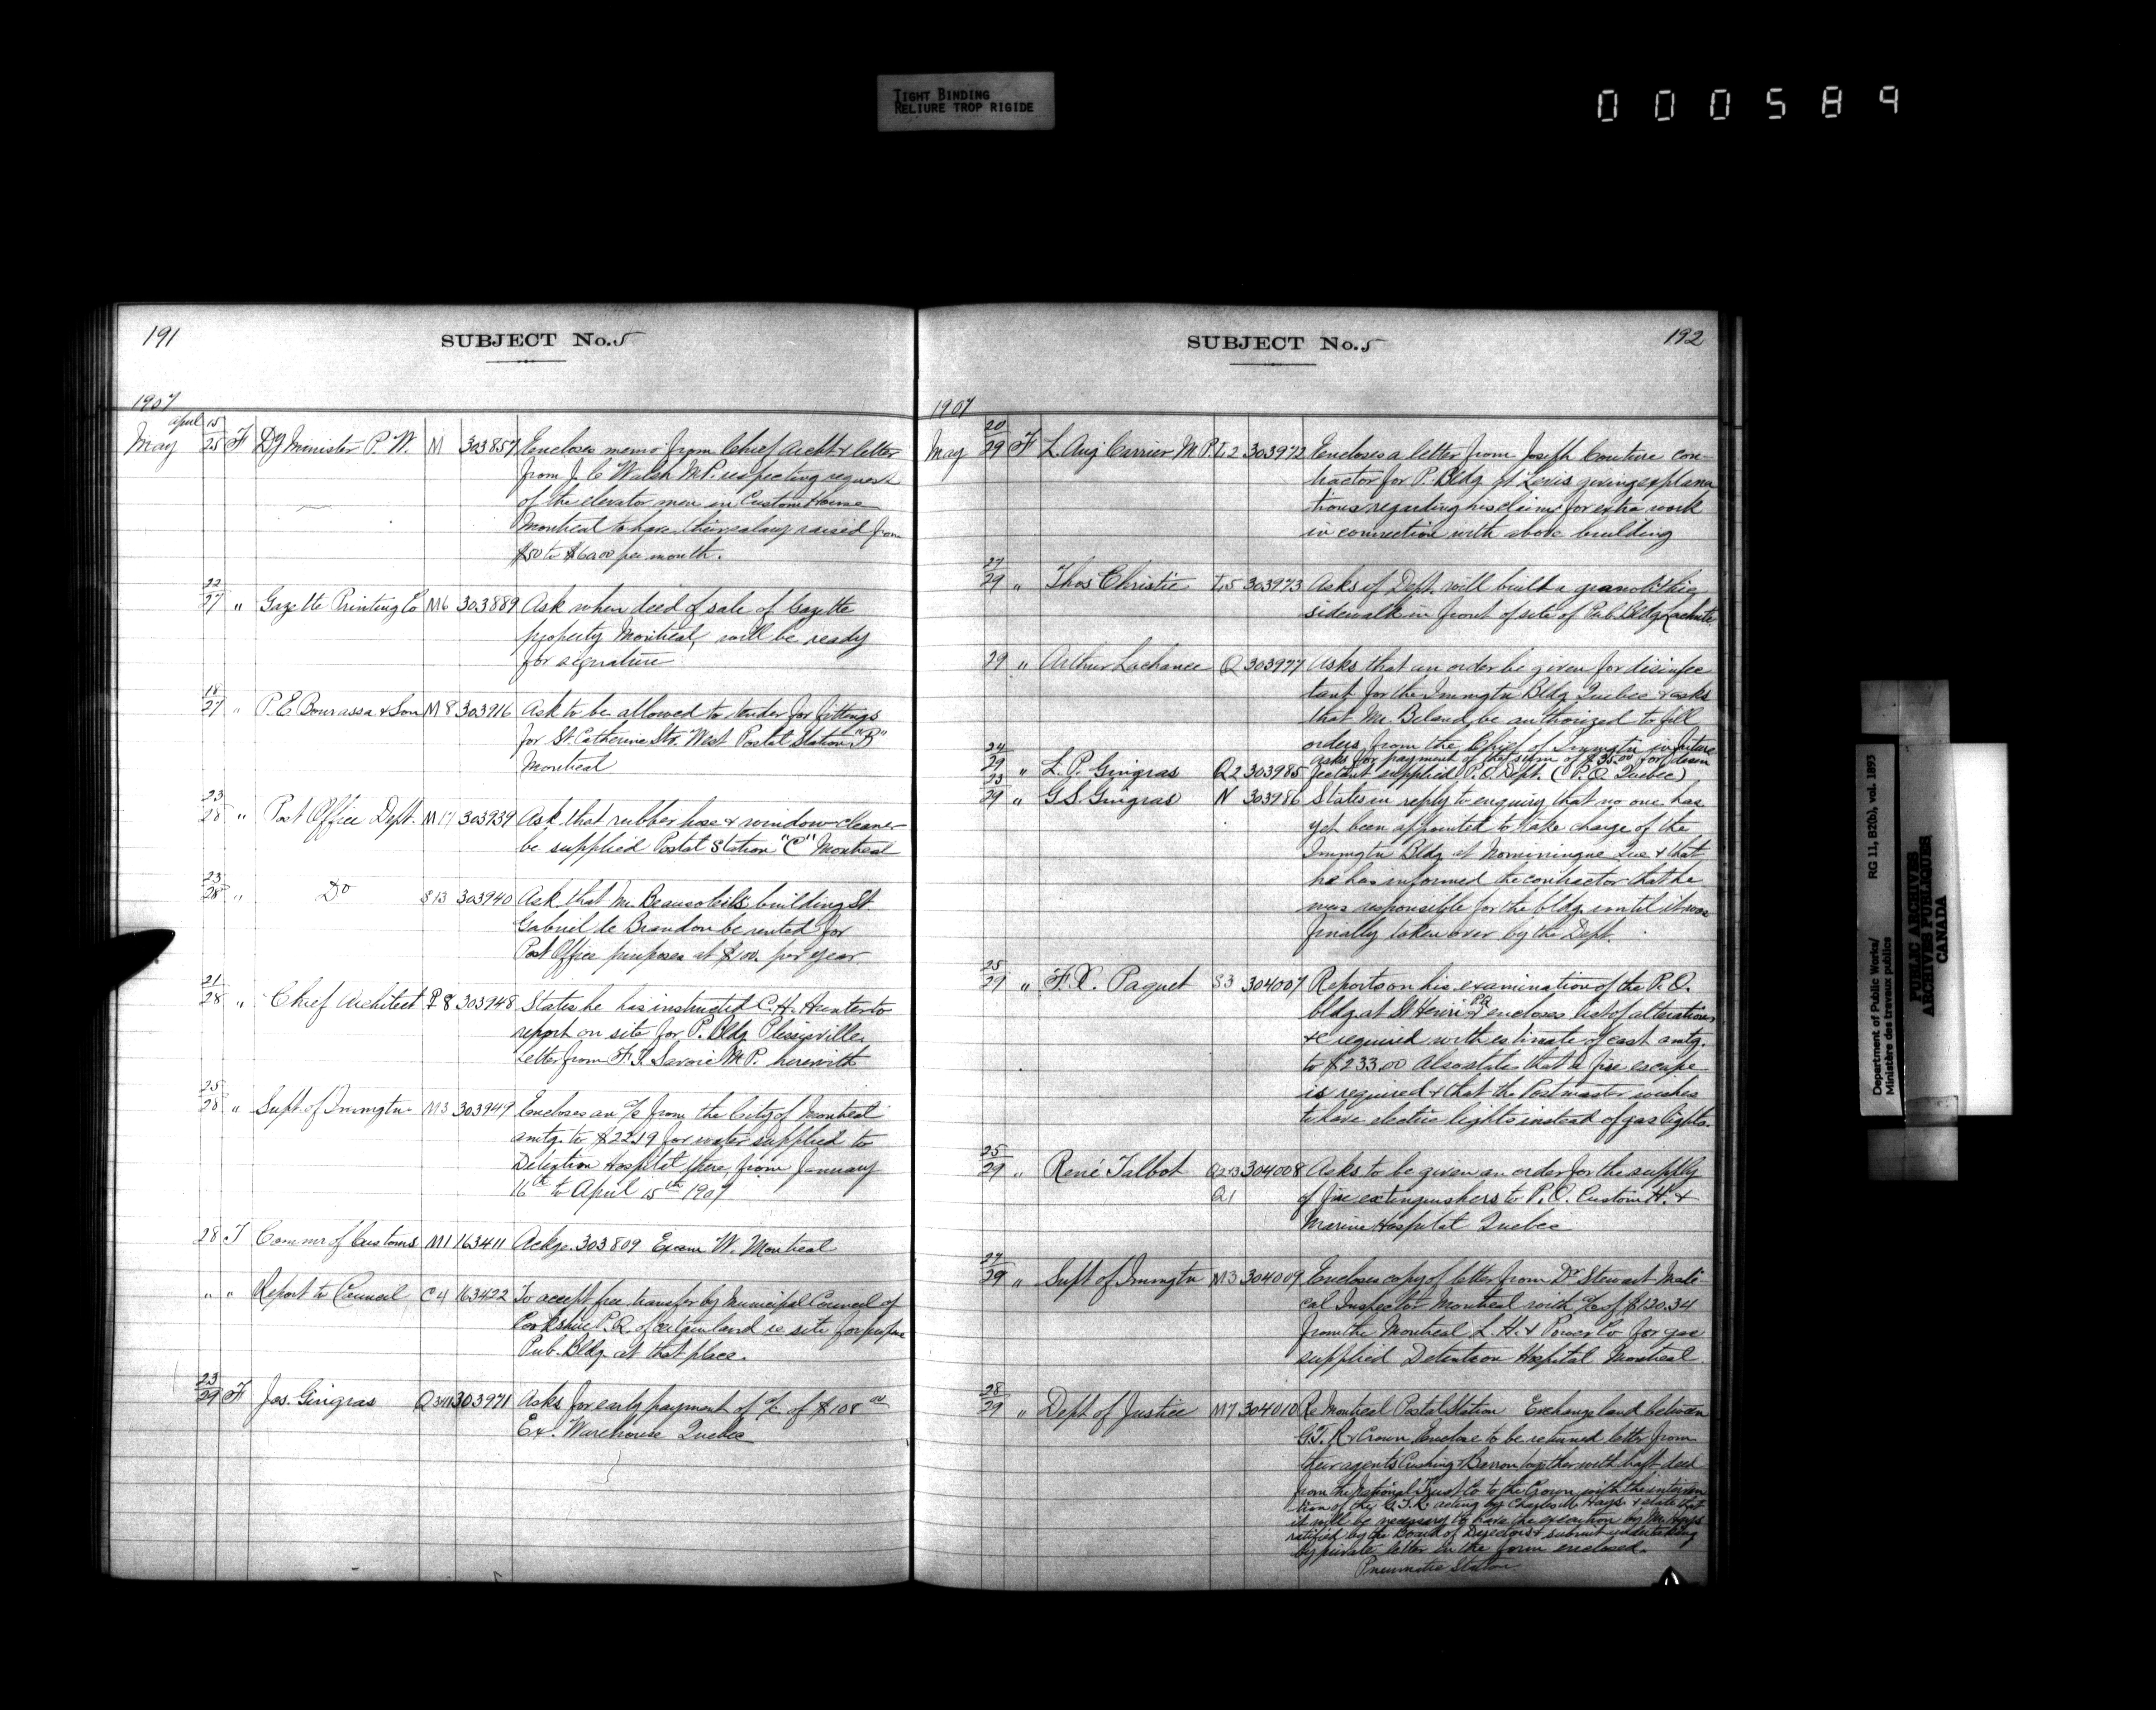 TIGHT BINDING
RELIURE TROP RIGIDE
000589
191
SUBJECT No. 5
1907
May April 15/25 F Dy Minister P. W. M 303857 Encloses memo from Chief Archt & letter
from J. C. Walsh M.P. respecting request
of the elevator men in Custom House
Montreal to have their salary raised from
$50 to $60.00 per month.
22/27 " Gazette Printing Co M6 303889 Ask when deed of sale of Gazette
property Montreal, will be ready
for signature
18/27 " P. E. Bourassa & Son M8 303916 Ask to be allowed to tender for fittings
for St. Catherine Str. West Postal Station "B"
Montreal
23/28 " Post Office Dept. M17 303939 Ask that rubber hose & window cleaner
be supplied Postal Station "C" Montreal
23/28 " Do S13 303940 Ask that Mr. Beausoleil's building St.
Gabriel de Brandon be rented for
Post Office purposes at $100. per year.
21/28 " Chief Architect P8 303948 States he has instructed C. H. Hunter to
report on site for P. Bldg Plessisville
Letter from F. T. Savoie M.P. herewith
25/28 " Supt. of Immgtn. M3 303949 Encloses an a/c from the City of Montreal
amtg. to $22.19 for water supplied to
Detention Hospital there, from January
16th to April 15th 1907
28 T Commr of Customs M1 163411 Ackge. 303809 Exam W. Montreal
" " Report to Council C4 163422 To accept free transfer by Municipal Council of
Cookshire P.Q. of certain land as site for
Pub. Bldg. at that place.
23/29 F Jos. Gingras Q 303971 Asks for early payment of a/c of $108.00
Ex. Warehouse Quebec
SUBJECT No. 5
192
1907
May 20/29 F L. Aug Carrier M.P. L2 303972 Encloses a letter from Joseph Couture con-
tractor for P. Bldg at Levis giving explana
tions regarding his claims for extra work
in connection with above building
27/29 " Thos Christie L5 303973 Asks if Dept. will build a granolithic
sidewalk in front of site of Pub. Bldg Lachute.
29 " Arthur Lachance Q 303977 Asks that an order be given for disinfec
tant for the Immgtn Bldg Quebec & asks
that Mr. Beland be authorized to fill
orders from the Chief of Immgtn in future
24/29 " L. P. Gingras Q2 303985 Asks for payment of the sum of $35.00 for disin
fectant supplied P.O. Dept. (P.O. Quebec)
23/29 " G. S. Gingras N 303986 States in reply to enquiry that no one has
yet been appointed to take charge of the
Immgtn Bldg at Nominingue Que & that
he has informed the contractor that he
was responsible for the bldg until it was
finally taken over by the Dept.
25/29 " F. X. Paquet S3 304007 Reports on his examination of the P.O.
bldg. at St Henri P.Q. & encloses list of alterations
&c required with estimate of cost amtg.
to $233.00 Also states that a fire escape
is required & that the Postmaster wishes
to have electric lights instead of gas lights.
25/29 " René Talbot Q2 304008 Asks to be given an order for the supply
Q1 of fire extinguishers to P.O. Custom H. &
Marine Hospital Quebec
27/29 " Supt of Immgtn M3 304009 Encloses copy of letter from Dr Stewart Medi-
cal Inspector Montreal with a/c of $120.34
from the Montreal L. H. & Power Co for gas
supplied Detention Hospital Montreal.
28/29 " Dept of Justice M7 304010 Re Montreal Postal Station Exchange land between
G.T.R. & Crown Enclose to be returned letter from
their agents Cushing & Barron together with draft deed
from the National Trust Co to the Crown with the interven
tion of the G.T.R. acting by Charles M. Hays & state that
it will be necessary to have the execution by Mr. Hays
ratified by the Board of Directors & submit undertaking
by private letter in the form enclosed.
Pneumatic Station.
Department of Public Works/ RG 11, B2(b), vol. 1893
Ministère des travaux publics
PUBLIC ARCHIVES
ARCHIVES PUBLIQUES
CANADA